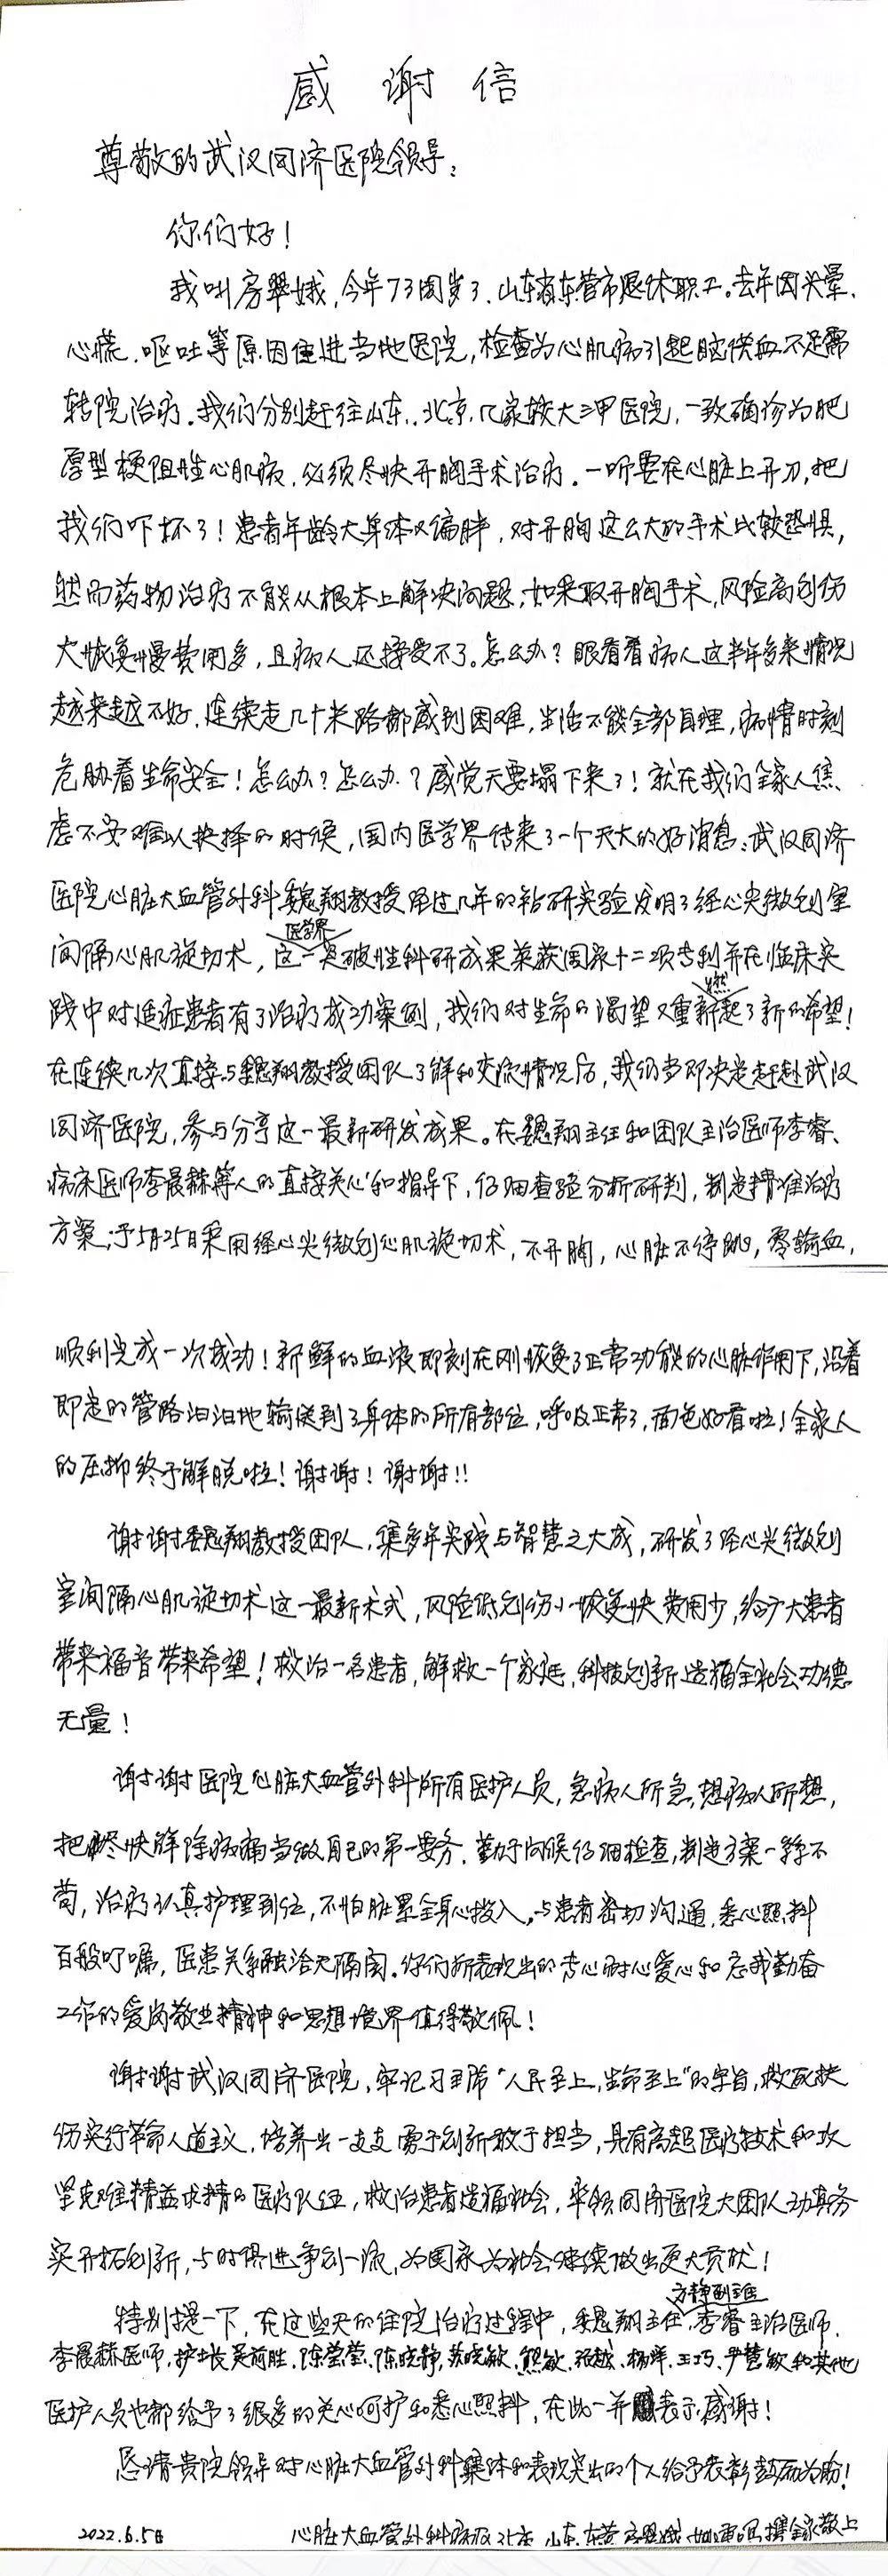 感谢信
尊敬的武汉同济医院领导：
你们好！
我叫房翠娥，今年73周岁了，山东省东营市退休职工。去年因头晕、
心慌、呕吐等原因住进当地医院，检查为心肌病引起脑供血不足需
转院治疗。我们分别赶往山东、北京，几家较大三甲医院，一致确诊为肥
厚型梗阻性心肌病，必须尽快开胸手术治疗。一听要在心脏上开刀，把
我们吓坏了！患者年龄大身体又偏胖，对开胸这么大的手术比较恐惧，
然而药物治疗不能从根本上解决问题，如采取开胸手术，风险高创伤
大恢复慢费用多，且病人还接受不了。怎么办？眼看着病人这半年多来情况
越来越不好，连续走几十米路都感到困难，生活不能全部自理，病情时刻
危胁着生命安全！怎么办？怎么办？感觉天要塌下来了！就在我们全家人焦
虑不安难以抉择的时候，国内医学界传来了一个天大的好消息：武汉同济
医院心脏大血管外科魏翔教授经过几年的钻研实验发明了经心尖微创室
间隔心肌旋切术，这一医学界突破性科研成果荣获国家十二项专利并在临床实
践中对适症患者有了治疗成功案例，我们对生命的渴望又重新燃起了新的希望！
在连续几次直接与魏翔教授团队了解和交流情况后，我们当即决定赶赴武汉
同济医院，参与分享这一最新研发成果。在魏翔主任和团队主治医师李睿、
病床医师李晨赫等人的直接关心和指导下，仔细查验分析研判，制定精准治疗
方案；于5月25日采用经心尖微创心肌旋切术，不开胸，心脏不停跳，零输血，
顺利完成一次成功！新鲜的血液即刻在刚恢复了正常功能的心脏作用下，沿着
即定的管路汩汩地输送到了身体的所有部位，呼吸正常了，面色好看啦！全家人
的压抑终于解脱啦！谢谢！谢谢！！
谢谢魏翔教授团队，集多年实践与智慧之大成，研发了经心尖微创
室间隔心肌旋切术这一最新术式，风险低创伤小恢复快费用少，给广大患者
带来福音带来希望！救治一名患者，解救一个家庭，科技创新造福全社会功德
无量！
谢谢医院心脏大血管外科所有医护人员，急病人所急，想病人所想，
把尽快解除病痛当做自己的第一要务，勤于问候仔细检查，制定方案一丝不
苟，治疗认真护理到位，不怕脏累全身心投入，与患者密切沟通，悉心照料
百般叮嘱，医患关系融洽无隔阂。你们所表现出的专心耐心爱心和忘我勤奋
工作的爱岗敬业精神和思想境界值得敬佩！
谢谢武汉同济医院，牢记习主席“人民至上，生命至上”的宗旨，救死扶
伤实行革命人道主义，培养出一支支勇于创新敢于担当，具有高超医疗技术和攻
坚克难精益求精的医疗队伍，救治患者造福社会，率领同济医院大团队求真务
实开拓创新，与时俱进争创一流，为国家为社会继续做出更大贡献！
特别提一下，在这些天的住院治疗过程中，魏翔主任，方静副主任，李睿主治医师，
李晨赫医师，护士长吴前胜、陈莹莹、陈晓静、苏晓敏、熊敏、张越、杨洋、王巧、尹慧敏和其他
医护人员也都给予了很多的关心呵护和悉心照料，在此一并表示感谢！
恳请贵院领导对心脏大血管外科集体和表现突出的个人给予表彰鼓励为盼！
2022.6.5日 心脏大血管外科病区25床 山东.东营房翠娥 携全家敬上